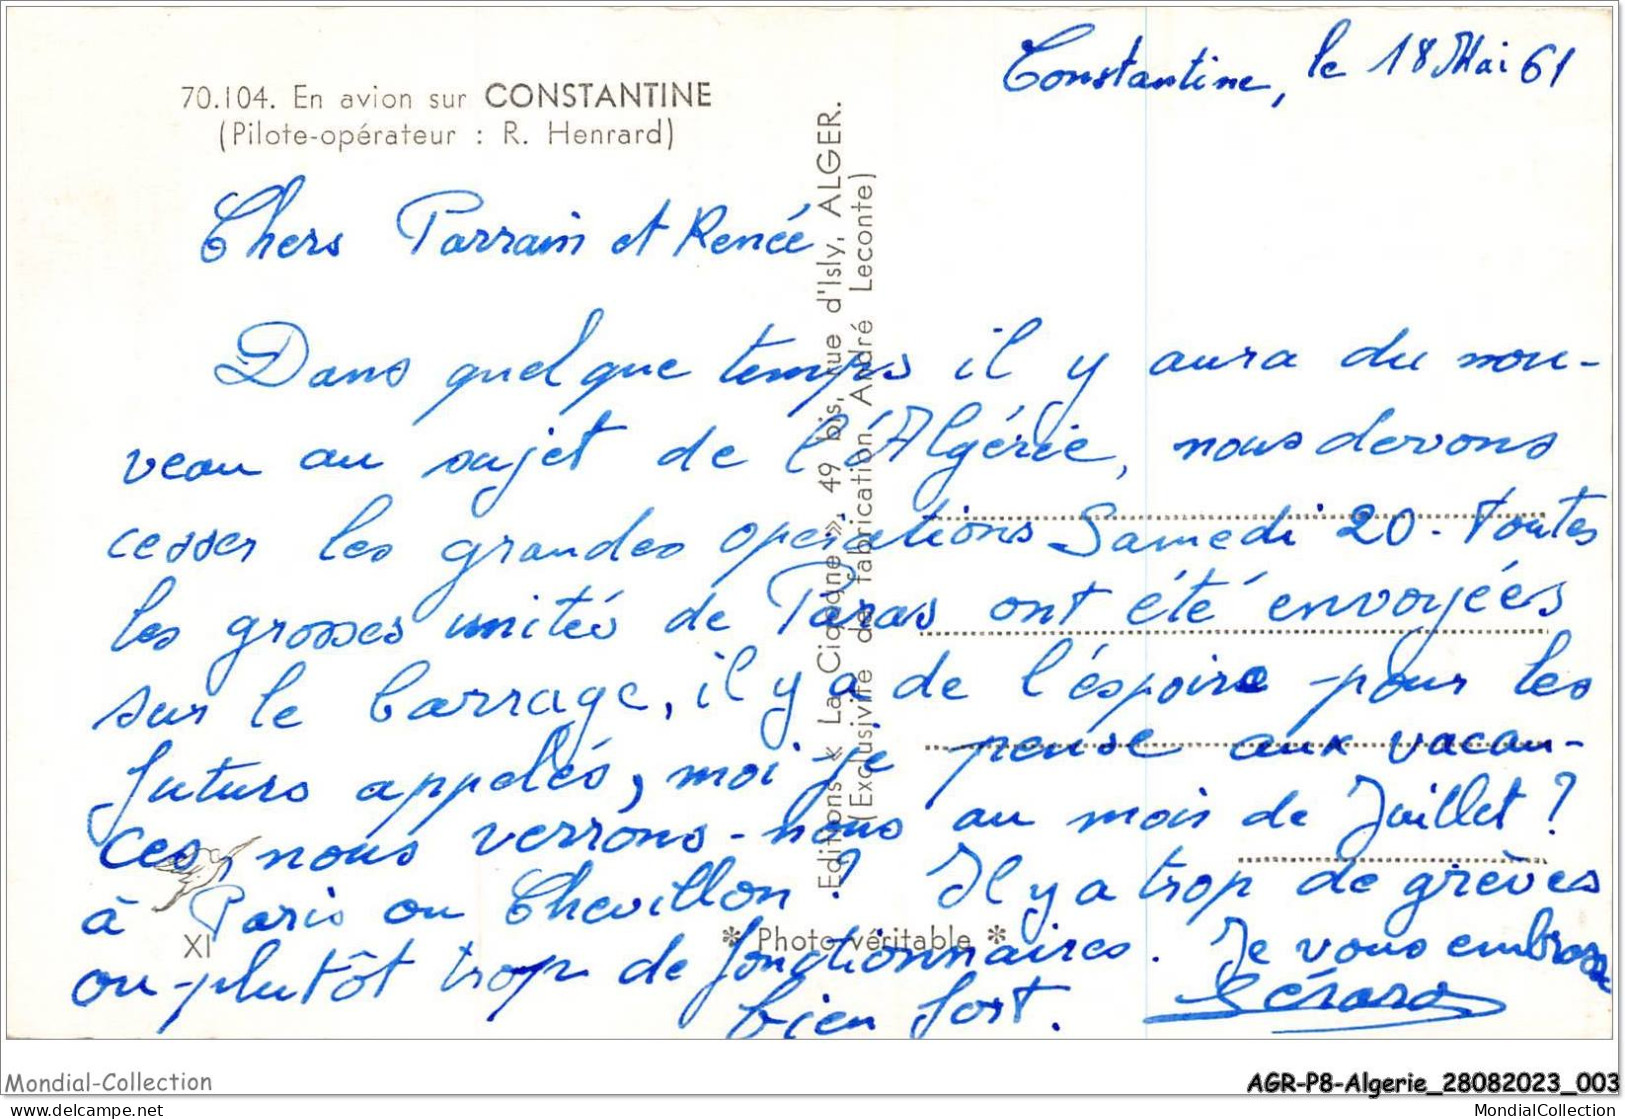 Constantine, le 18 Mai 61
70.104. En avion sur CONSTANTINE
(Pilote-opérateur : R. Henrard)
Chers Parrain et Renée
Dans quelque temps il y aura du nou-
veau au sujet de l'Algérie, nous devons
cesser les grandes opérations Samedi 20. Toutes
les grosses unités de Paras ont été envoyées
sur le barrage, il y a de l'éspoire pour les
futurs appelés, moi je pense aux vacan-
ces, nous verrons-nous au mois de Juillet ?
à Paris ou Chevillon ? Il y a trop de grèves
ou plutôt trop de fonctionnaires. Je vous embrasse
bien fort. Gérard
Editions « La Cigogne », 49 bis, rue d'Isly, ALGER.
(Exclusivité de fabrication André Leconte)
XI
* Photo véritable *
Mondial-Collection
AGR-P8-Algerie_28082023_003
https://www.delcampe.net
MondialCollection